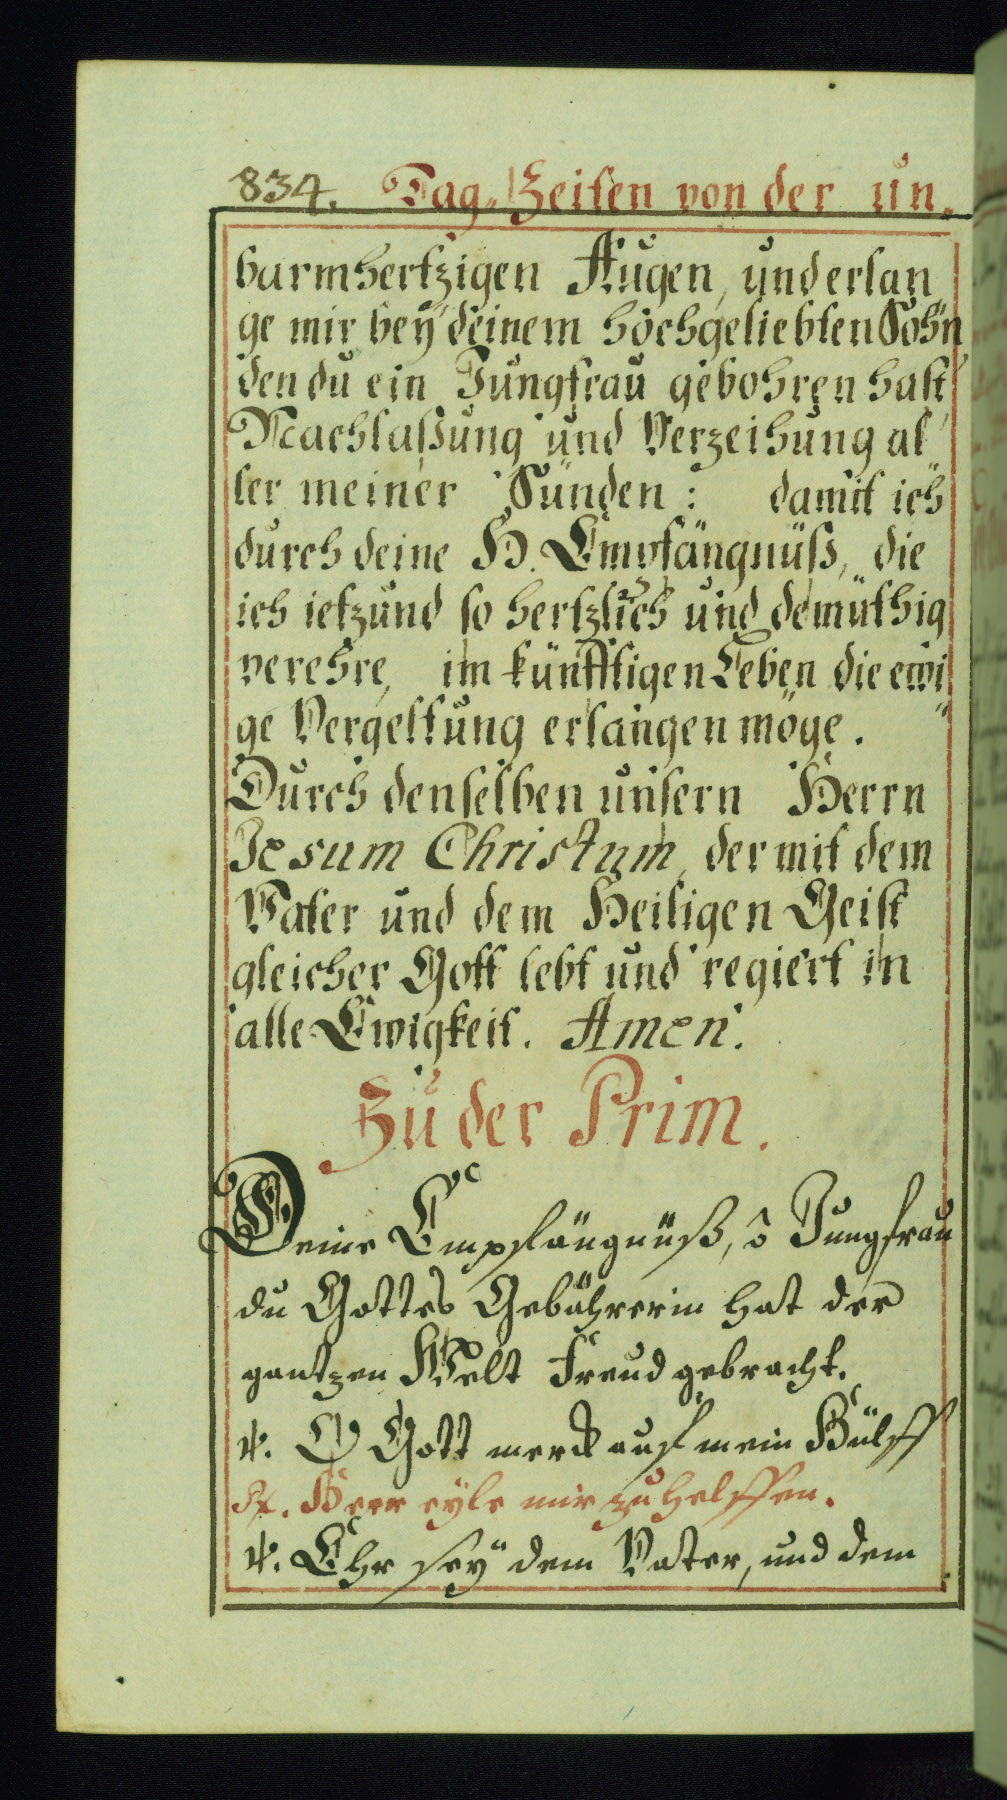 834. Tag-Zeiten von der un-
barmhertzigen Augen, und erlan
ge mir bey deinem hochgeliebten Sohn,
den du ein Jungfrau gebohren hast,
Nachlaßung und Verzeihung al
ler meiner Sünden: damit ich
durch deine H. Empfängnüß, die
ich ietzund so hertzlich und demüthig
verehre, im künfftigen Leben die ewi
ge Vergeltung erlangen möge.
Durch denselben unsern Herrn
Jesum Christum, der mit dem
Vater und dem Heiligen Geist
gleicher Gott lebt und regiert in
alle Ewigkeit. Amen.
Zu der Prim.
Deine Empfängnüß, ô Jungfrau
du Gottes Gebährerin hat der
gantzen Welt Freud gebracht.
℣. O Gott merck auf mein Hülff
℟. Herr eyle mir zu helffen.
℣. Ehr sey dem Vater, und dem